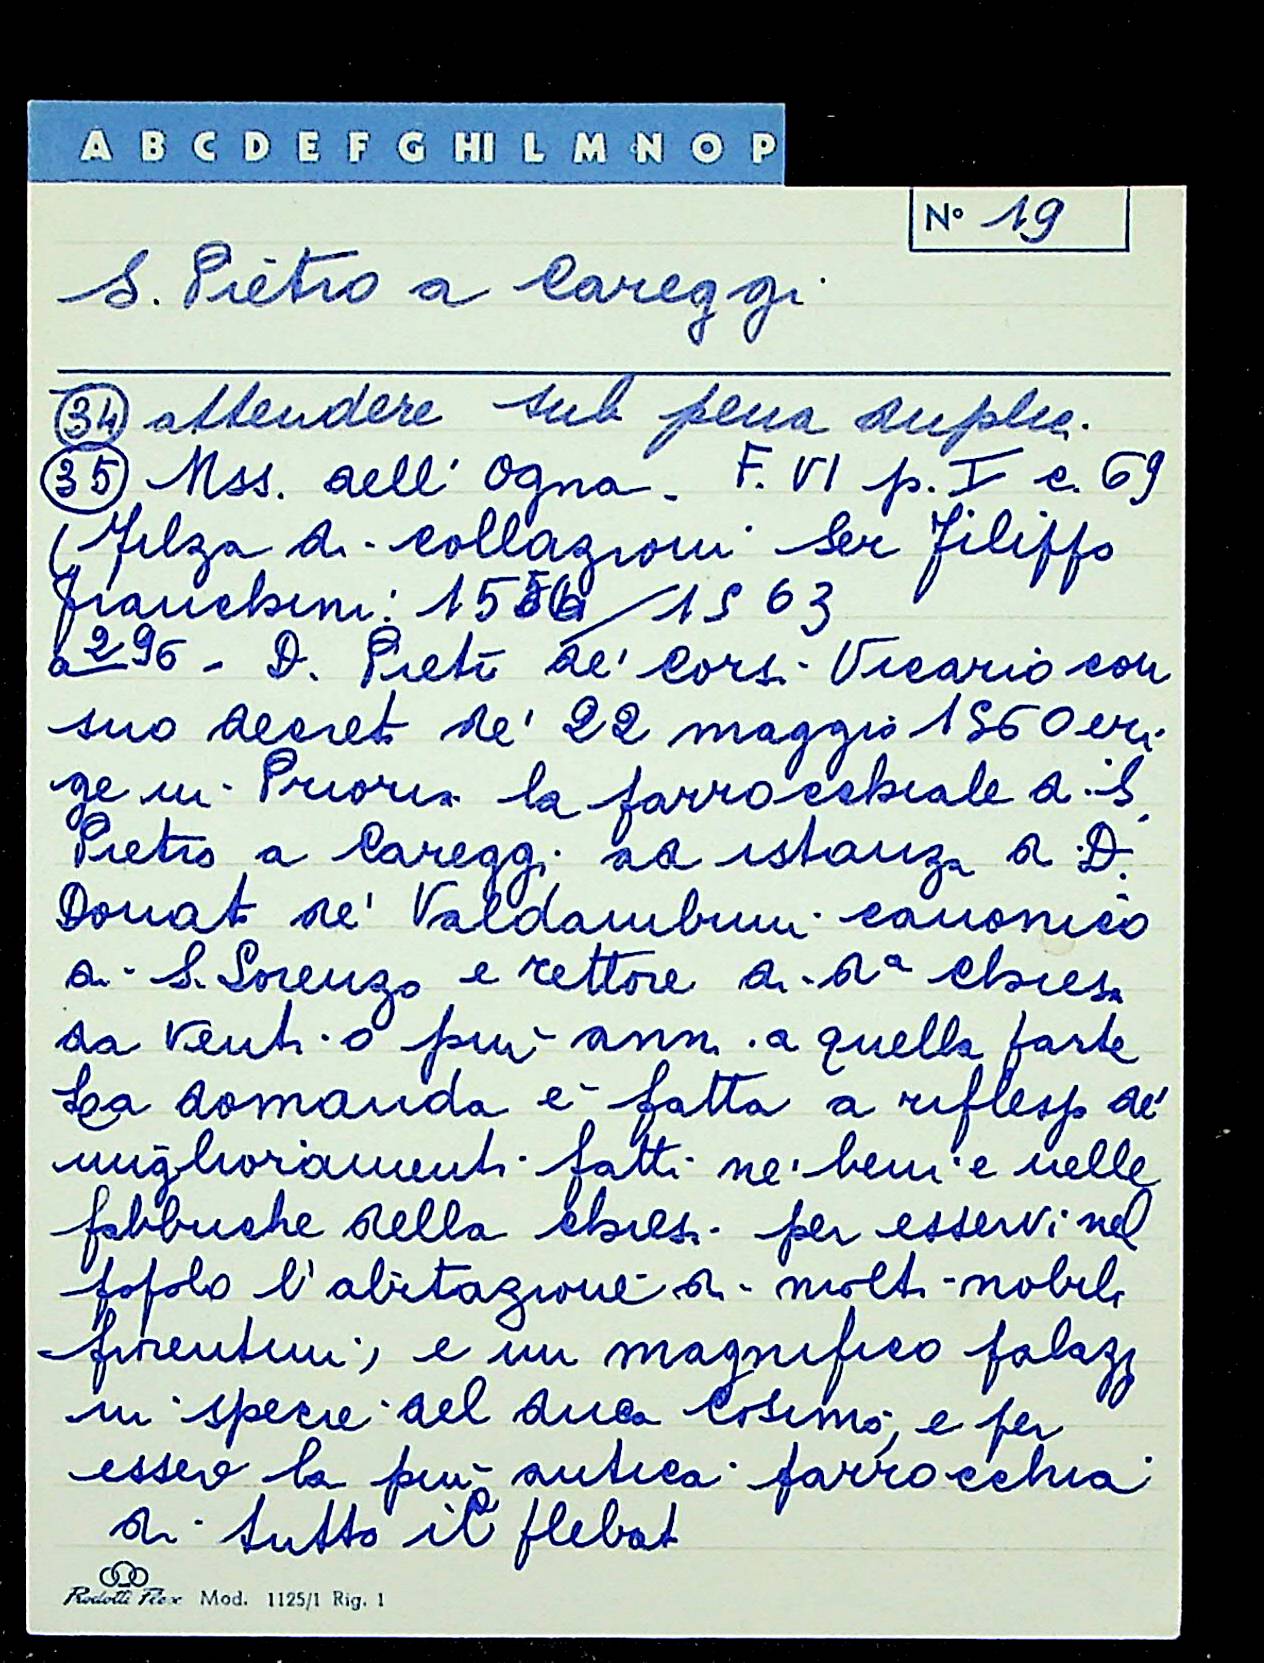 A B C D E F G HI L M N O P
N° 19
S. Pietro a Careggi
34 attendere sub pena dupli.
35 Mss. dell' Ogna - F. VI p. I c. 69
(Filza di collazioni Ser Filippo
Franchini: 1556/1563
a 296 - D. Pietro de' Corsi Vicario con
suo decreto de' 22 maggio 1560 eri-
ge in Prioria la parrocchiale di S.
Pietro a Careggi ad istanza di D.
Donato de' Valdambrini canonico
di S. Lorenzo e rettore di dª chiesa
da venti o più anni a quella parte
La domanda è fatta a riflesso de'
miglioramenti fatti ne' beni e nelle
fabbriche della chiesa per esservi nel
popolo l'abitazione di molti nobili
fiorentini, e un magnifico palazzo
in specie del duca Cosimo, e per
essere la più antica parrocchia
di tutto il plebato
Rodotti Flex Mod. 1125/1 Rig. 1